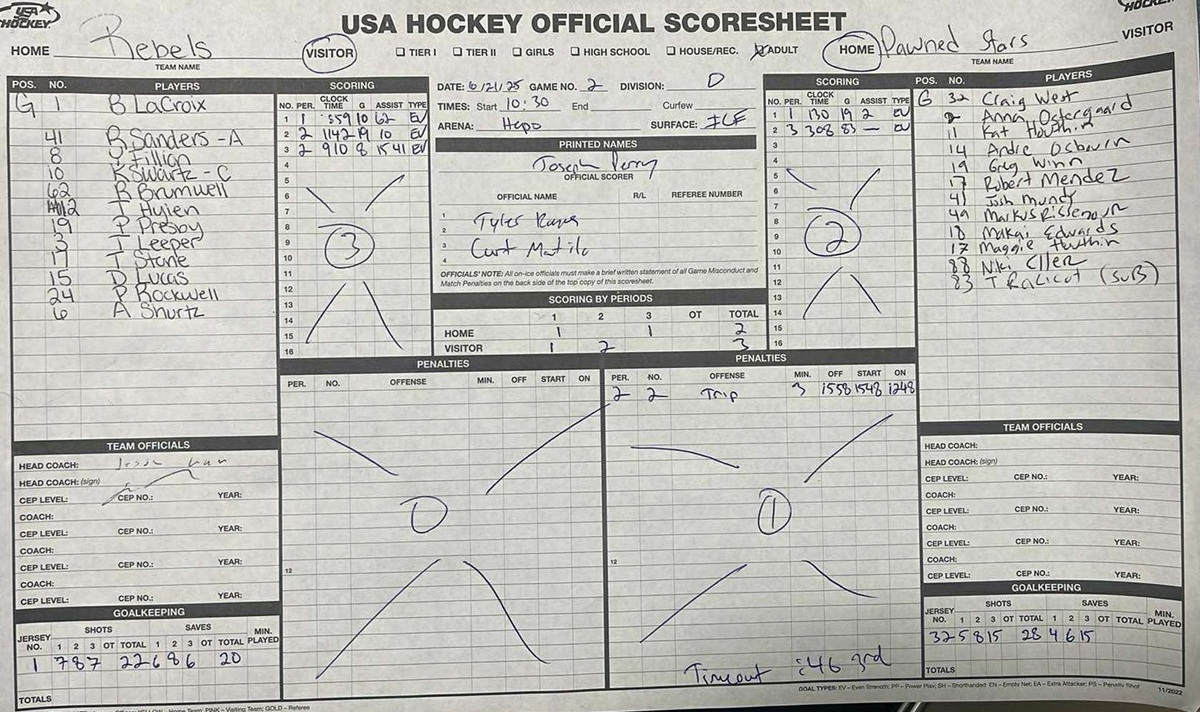 USA HOCKEY
USA HOCKEY OFFICIAL SCORESHEET
HOCKEY
HOME Rebels VISITOR ☐ TIER I ☐ TIER II ☐ GIRLS ☐ HIGH SCHOOL ☐ HOUSE/REC. ☒ ADULT HOME Pawned Stars VISITOR
TEAM NAME TEAM NAME
POS. NO. PLAYERS
G 1 B LaCroix
41 B Sanders - A
8 Fillian
10 K Swartz - C
62 B Brumwell
12 T Hylen
19 P Presby
3 T Leeper
17 T Stone
15 D Lucas
24 P Rockwell
6 A Shurtz
SCORING
NO. PER. CLOCK TIME G ASSIST TYPE
1 1 359 10 62 EV
2 2 1142 19 10 EV
3 2 910 8 15 41 EV
4
5
6
7
8
9
10
11
12
13
14
15
16
3
DATE: 6/21/25 GAME NO. 2 DIVISION: D
TIMES: Start 10:30 End Curfew
ARENA: Hapo SURFACE: ICE
PRINTED NAMES
Joseph Perry
OFFICIAL SCORER
OFFICIAL NAME R/L REFEREE NUMBER
1
2 Tyler
3 Curt
4
OFFICIALS' NOTE: All on-ice officials must make a brief written statement of all Game Misconduct and
Match Penalties on the back side of the top copy of this scoresheet.
SCORING BY PERIODS
1 2 3 OT TOTAL
HOME 1 1 2
VISITOR 1 2 3
SCORING
NO. PER. CLOCK TIME G ASSIST TYPE
1 1 130 19 2 EV
2 3 308 83 — EV
3
4
5
6
7
8
9
10
11
12
13
14
15
16
2
POS. NO. PLAYERS
G 32 Craig West
2 Anna Ostergaard
11 Kat
14 Andre Osborn
19 Greg Winn
17 Robert Mendez
41 Josh Mundy
49 Markus
18 Makai Edwards
17 Maggie
88 Niki
83 T Ralicot (SUB)
PENALTIES
PER. NO. OFFENSE MIN. OFF START ON
12
0
PENALTIES
PER. NO. OFFENSE MIN. OFF START ON
2 2 Trip 3 1558 1548 1248
12
1
Timeout :46 3rd
TEAM OFFICIALS
HEAD COACH:
HEAD COACH: (sign)
CEP LEVEL: CEP NO.: YEAR:
COACH:
CEP LEVEL: CEP NO.: YEAR:
COACH:
CEP LEVEL: CEP NO.: YEAR:
COACH:
CEP LEVEL: CEP NO.: YEAR:
GOALKEEPING
JERSEY NO. SHOTS 1 2 3 OT TOTAL SAVES 1 2 3 OT TOTAL MIN. PLAYED
1 7 8 7 22 6 8 6 20
TOTALS
TEAM OFFICIALS
HEAD COACH:
HEAD COACH: (sign)
CEP LEVEL: CEP NO.: YEAR:
COACH:
CEP LEVEL: CEP NO.: YEAR:
COACH:
CEP LEVEL: CEP NO.: YEAR:
COACH:
CEP LEVEL: CEP NO.: YEAR:
GOALKEEPING
JERSEY NO. SHOTS 1 2 3 OT TOTAL SAVES 1 2 3 OT TOTAL MIN. PLAYED
32 5 8 15 28 4 6 15
TOTALS
GOAL TYPES: EV – Even Strength; PP – Power Play; SH – Shorthanded; EN – Empty Net; EA – Extra Attacker; PS – Penalty Shot 11/2022
Home Team; PINK – Visiting Team; GOLD – Referee